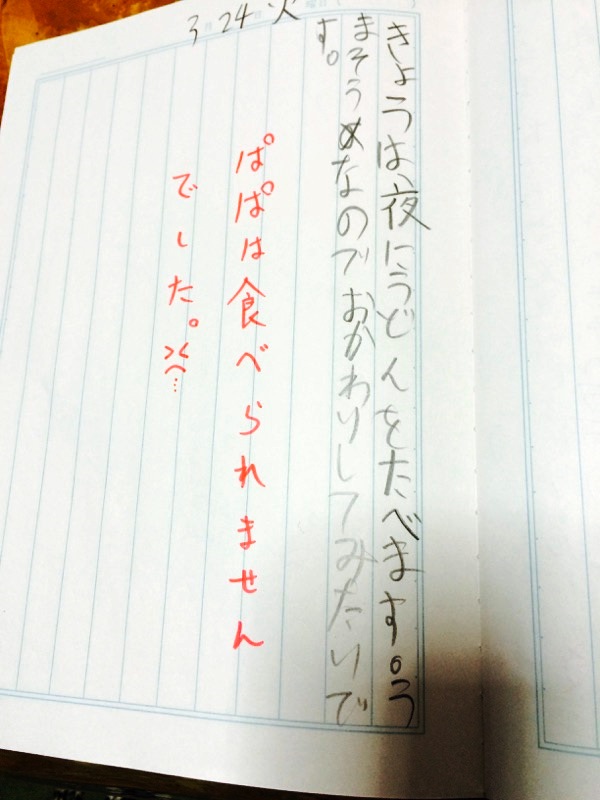 3月24日 火
きょうは、夜にうどんをたべます。う
まそうなのでおかわりしてみたいで
す。
ぱぱは食べられません
でした。